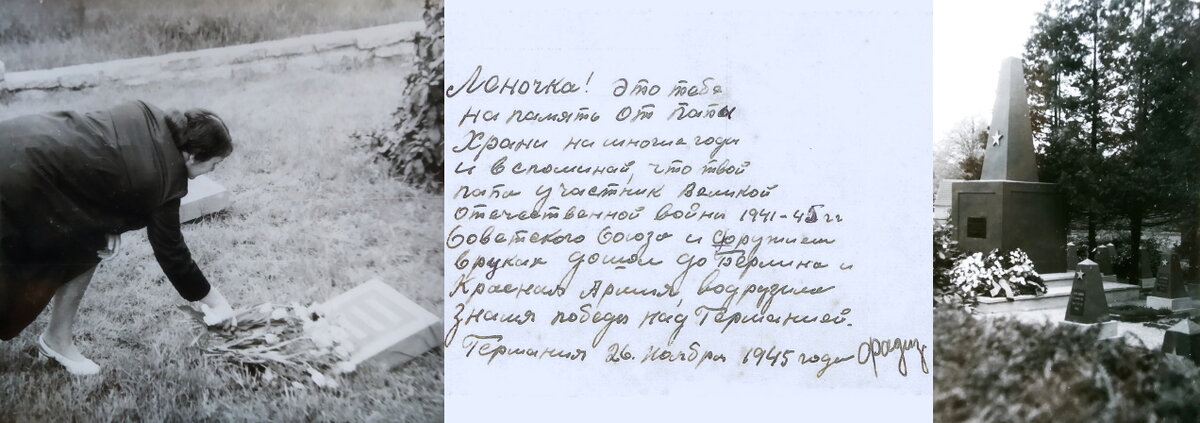 Леночка! Это тебе
на память от папы
Храни на многие годы
и вспоминай, что твой
папа участник Великой
отечественной войны 1941-45 гг
Советского Союза и с оружием
в руках дошел до Берлина и
Красная Армия, водрузила
Знамя победы над Германией.
Германия 26. ноября 1945 года